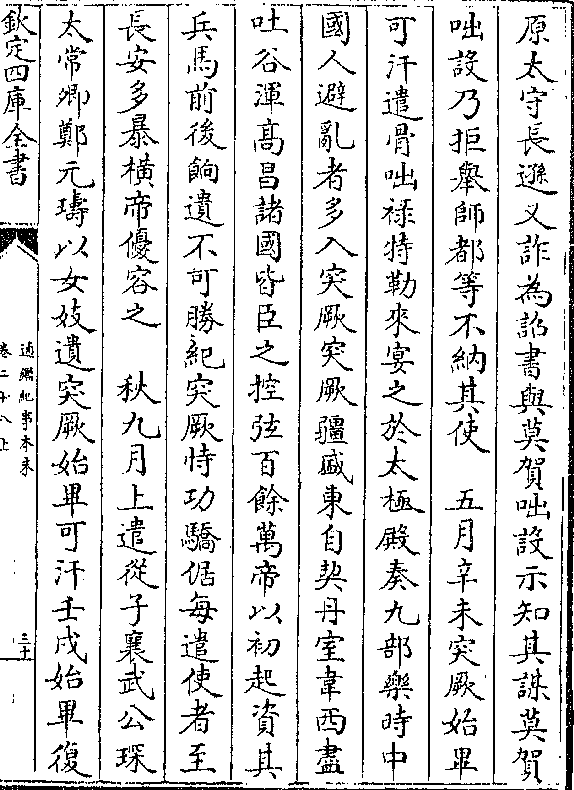 原太守長遜又詐為詔書與莫賀咄設示知其謀莫賀
咄設乃拒舉師都等不納其使　五月辛未突厥始畢
可汗遣骨咄祿特勒來宴之於太極殿奏九部樂時中
國人避亂者多入突厥突厥疆盛東自契丹室韋西盡
吐谷渾高昌諸國皆臣之控弦百餘萬帝以初起資其
兵馬前後餉遺不可勝紀突厥恃功驕倨每遣使者至
長安多暴橫帝優容之　秋九月上遣從子襄武公琛
太常卿鄭元璹以女妓遺突厥始畢可汗壬戌始畢復
欽定四庫全書
通鑑紀事本末
卷二十八上
三十